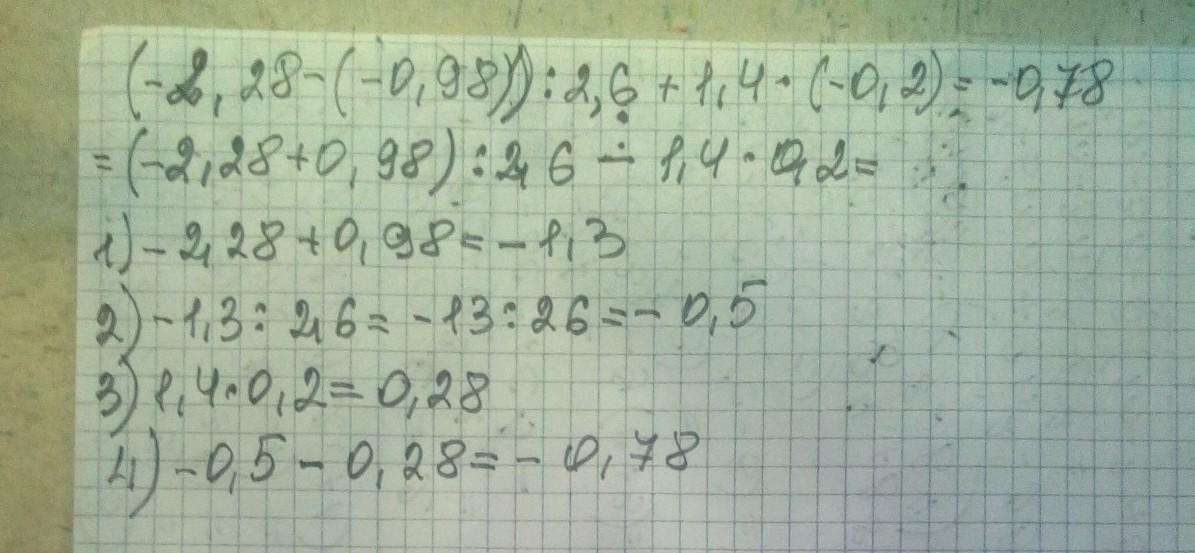 (-2,28-(-0,98)):2,6+1,4·(-0,2)=-0,78
=(-2,28+0,98):2,6-1,4·0,2=
1)-2,28+0,98=-1,3
2)-1,3:2,6=-13:26=-0,5
3)1,4·0,2=0,28
4)-0,5-0,28=-0,78